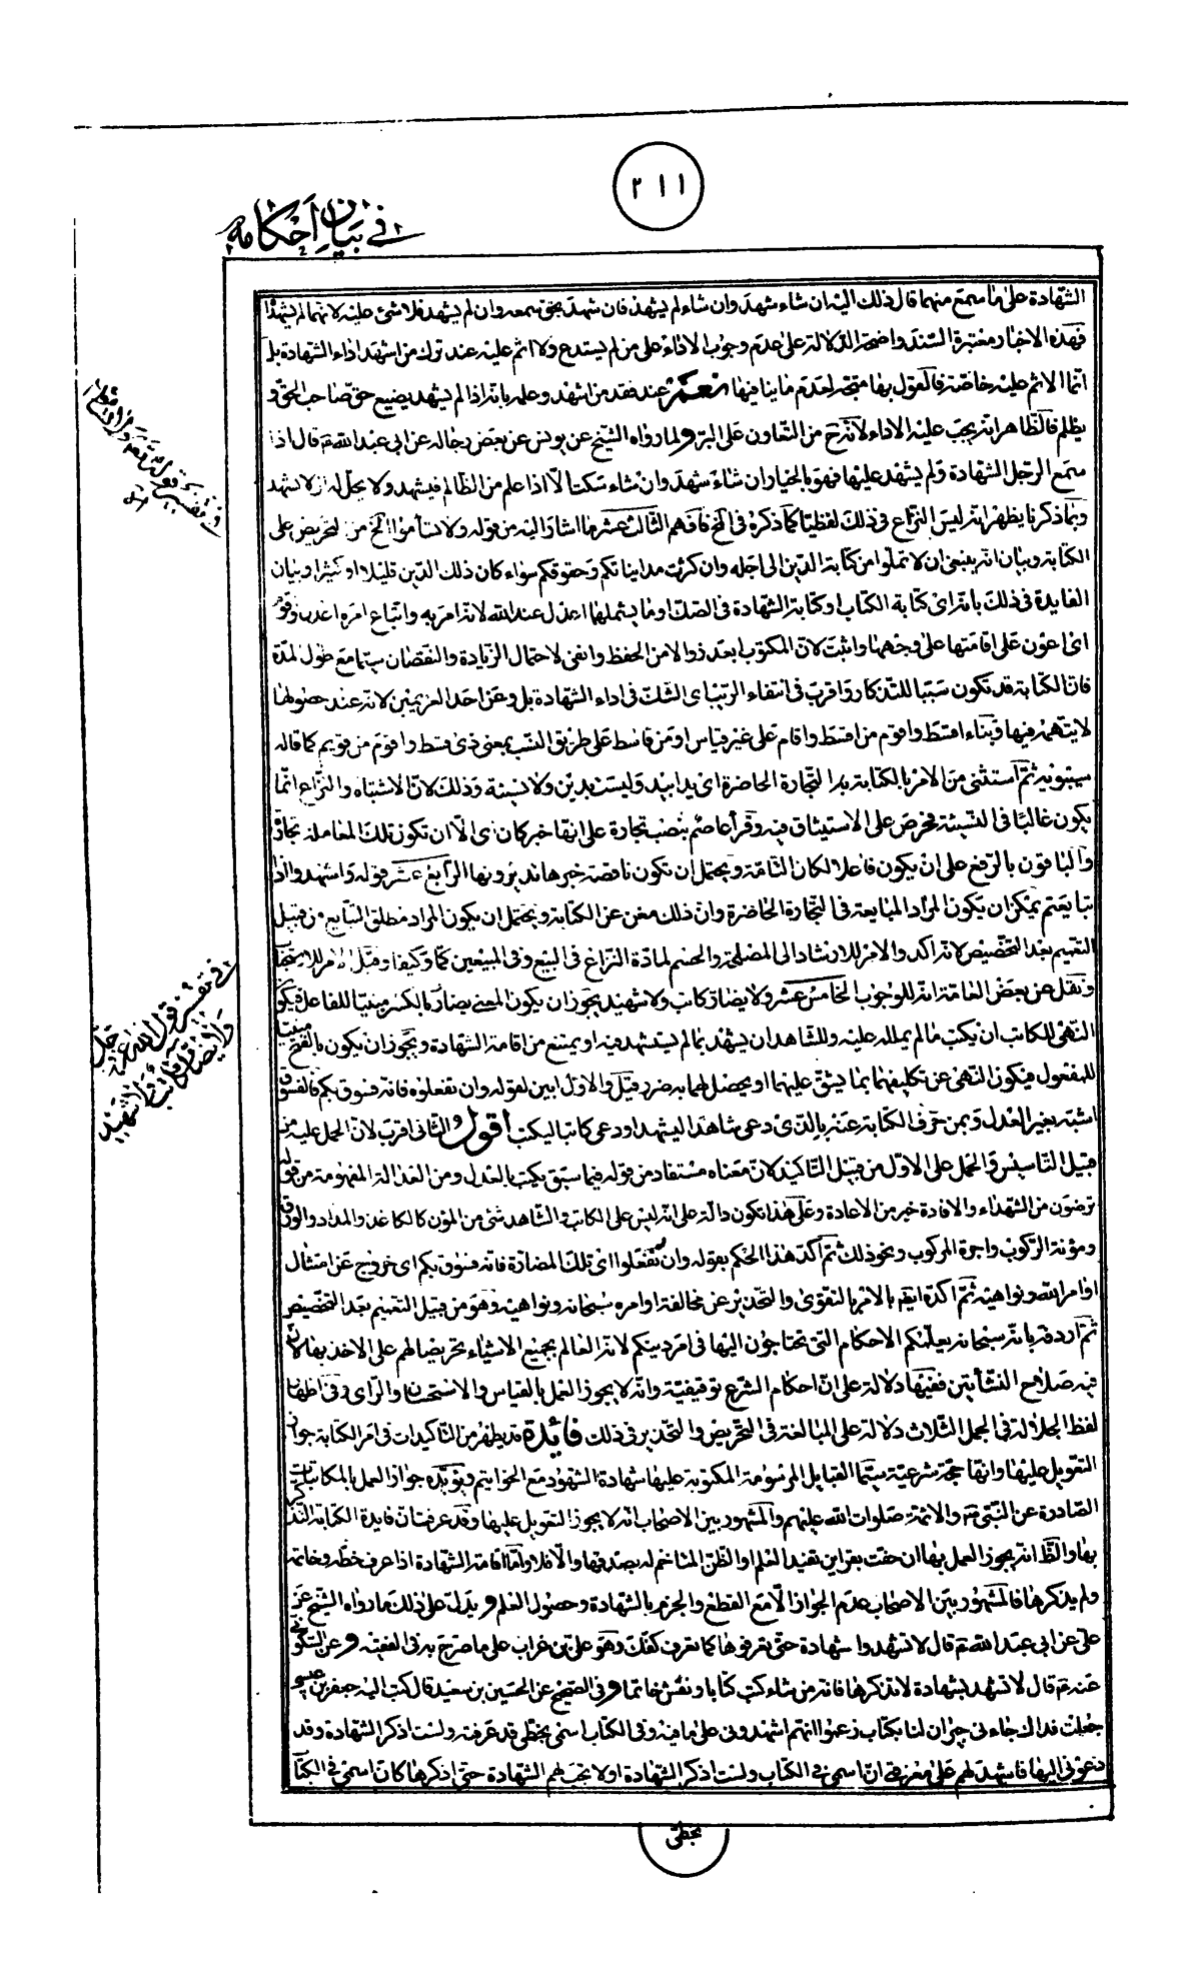 ٢١١
في بيان أحكامه
الشهادة على ما سمع منهما قال ذلك اليه ان شاء شهد وان شاء لم يشهد فان شهد بحق سمعه وان لم يشهد فلا شئ عليه لانهما لم يشهداه
فهذه الاخبار معتبرة السند واضحة الدلالة على عدم وجوب الاداء على من لم يستدع ولا اثم عليه عند ترك من اشهد اداء الشهادة بل
انما الاثم عليه خاصة فالقول بها متجه لعدم ما ينافيها نعم عند فقد من اشهد وعلمه بانه اذا لم يشهد يضيع حق صاحب الحق و
يظلم فالظاهر انه يجب عليه الاداء لانه ح من التعاون على البر ولما رواه الشيخ عن يونس عن بعض رجاله عن ابى عبد الله ع قال اذا
سمع الرجل الشهادة ولم يشهد عليها فهو بالخيار ان شاء شهد وان شاء سكت الا اذا علم من الظالم فيشهد ولا يحل له ان لا يشهد
وبما ذكرنا يظهر انه ليس النزاع في ذلك لفظيا كما ذكره في فافهم الثالث عشر ما اشار اليه من قوله ولا تسأموا الخ من التحريض على
الكتابة وبيان انه ينبغي ان لا تملوا من كتابة الدين الى اجله وان كثرت مدايناتكم وحقوقكم سواء كان ذلك الدين قليلا او كثيرا وبيان
الفايدة في ذلك بانه اى كتابة الكتاب او كتابة الشهادة فى الصك او ما يشملهما اعدل عند الله لانه امر به واتباع امره اعدل واقوم
اى اعون على اقامتها على وجهها واثبت لان المكتوب ابعد زوالا من الحفظ وانفى لاحتمال الزيادة والنقصان سيما مع طول المدة
فان الكتابة قد تكون سببا للتذكار واقرب فى انتفاء الريب اى الشك فى اداء الشهادة بل وعن احد الغريمين لانه عند حصولها
لا يتهم فيها وبناء اقسط واقوم من اقسط واقام على غير قياس او من قاسط على طريق النسب بمعنى ذى قسط واقوم من قويم كما قاله
سيبويه ثم استثنى من الامر بالكتابة التجارة الحاضرة اى يدا بيد وليست بدين ولا نسيئة وذلك لان الاشتباه والنزاع انما
يكون غالبا فى النسيئة فحرص على الاستيثاق فيه وقرأ عاصم بنصب تجارة على انها خبر كان اى الا ان تكون تلك المعاملة تجارة
والباقون بالرفع على ان يكون فاعلا لكان التامة ويحتمل ان تكون ناقصة خبرها تديرونها الرابع عشر قوله واشهدوا اذا
تبايعتم يمكن ان يكون المراد المبايعة فى التجارة الحاضرة وان ذلك مغن عن الكتابة ويحتمل ان يكون المراد مطلق التبايع من قبيل
التعميم بعد التخصيص لانه اكد والامر للارشاد الى المصلحة والحسم لمادة النزاع فى البيع وفى المبيعين كما وكيفا وقيل الامر للاستحباب
ونقل عن بعض العامة انه للوجوب الخامس عشر ولا يضار كاتب ولا شهيد يجوز ان يكون المعنى يضار بالكسر مبنيا للفاعل فيكون
النهى للكاتب ان يكتب ما لم يملله عليه وللشاهد ان يشهد بما لم يستشهد فيه او يمتنع من اقامة الشهادة ويجوز ان يكون بالفتح مبنيا
للمفعول فيكون النهى عن تكليفهما بما يشق عليهما او يحصل لهما به ضرر قيل والاول ابين لقوله وان تفعلوه فانه فسوق بكم فالفسق
اشبه بغير العدل وبمن حرف الكتابة عنه بالذى دعى شاهدا ليشهد او دعى كاتبا ليكتب اقول والثانى اقرب لان الحمل عليه من
قبيل التاسيس والحمل على الاول من قبيل التاكيد لان معناه مستفاد من قوله فيما سبق يكتب بالعدل ومن العدالة المفهومة من قوله
ترضون من الشهداء والافادة خير من الاعادة وعلى هذا تكون دالة على انه ليس على الكاتب والشاهد شئ من المؤن كالكاغذ والمداد والورق
ومؤنة الركوب واجرة المركوب ونحو ذلك ثم اكد هذا الحكم بقوله وان تفعلوا اى تلك المضارة فانه فسوق بكم اى خروج عن امتثال
اوامر الله ونواهيه ثم اكده ايضا بالامر بالتقوى والتحذير عن مخالفة اوامره سبحانه ونواهيه وهو من قبيل التعميم بعد التخصيص
ثم اردفه بانه سبحانه يعلمكم الاحكام التى تحتاجون اليها فى امر دينكم لانه العالم بجميع الاشياء تحريضا لهم على الاخذ بها لان
فيه صلاح النشأتين ففيها دلالة على ان احكام الشرع توقيفية وانه لا يجوز العمل بالقياس والاستحسان والراى وفى اظهار
لفظ الجلالة فى الجمل الثلاث دلالة على المبالغة فى التحريض والتحذير فى ذلك فائدة قد يظهر من التاكيدات فى امر الكتابة جواز
التعويل عليها وانها حجة شرعية سيما القبايل المرسومة المكتوبة عليها شهادة الشهود مع الخواتيم ويؤيده جواز العمل بالمكاتبات
الصادرة عن النبى ص والائمة صلوات الله عليهم والمشهور بين الاصحاب انه لا يجوز التعويل عليها وقد عرفت ان فايدة الكتابة التذكر
بها والظ انه يجوز العمل بها ان حفت بقراين تفيد العلم او الظن المتاخم له بصدقها والا فلا واما اقامة الشهادة اذا عرف خطه وخاتمه
ولم يذكرها فالمشهور بين الاصحاب عدم الجواز الا مع القطع والجزم بالشهادة وحصول العلم ويدل على ذلك ما رواه الشيخ عن
على عن ابى عبد الله ع قال لا تشهدوا شهادة حتى تعرفوها كما تعرف كفك وهو على بن غراب على ما صرح به فى الفقيه وعن السكونى
عنه ع قال لا تشهد بشهادة لا تذكرها فانه من شاء كتب كتابا ونقش خاتما وفى الصحيح عن الحسين بن سعيد قال كتب اليه جعفر بن عيسى
جعلت فداك جاءنى جيران لنا بكتاب زعموا انهم اشهدونى على ما فيه وفى الكتاب اسمى بخطى قد عرفته ولست اذكر الشهادة وقد
دعونى اليها فاشهد لهم على معرفتى ان اسمى فى الكتاب ولست اذكر الشهادة او لا تجب لهم الشهادة حتى اذكرها كان اسمى فى الكتاب
بخطى
في تفسير قوله تعالى ولا تسأموا
في تفسير قول الله عز وجل
ولا يضار كاتب ولا شهيد